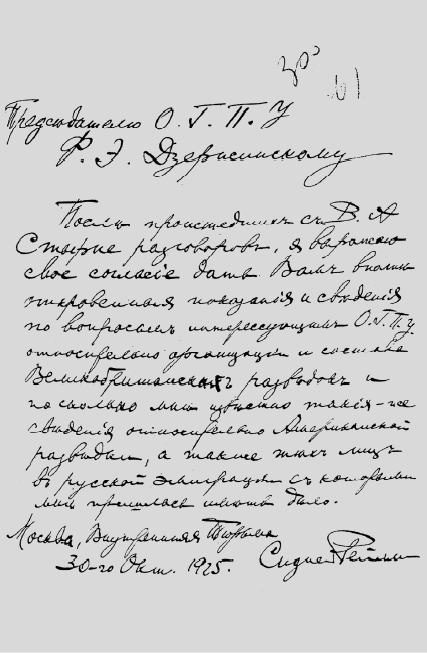 30
61
Председателю О. Г. П. У
Ф. Э. Дзержинскому
После происшедших съ В. А
Стырне разговоровъ, я выражаю
свое согласіе дать Вамъ вполне
откровенныя показанія и сведенія
по вопросамъ интересующимъ О.Г.П.У.
относительно организации и состава
Великобританской разведки и
по сколько мне известно такія-же
сведенія относительно Американской
разведки, а также техъ лицъ
въ русской эмиграции съ которыми
мне пришлось иметь дело.
Москва, Внутренняя Тюрьма
30-го Окт. 1925.
Сидней Рейлли